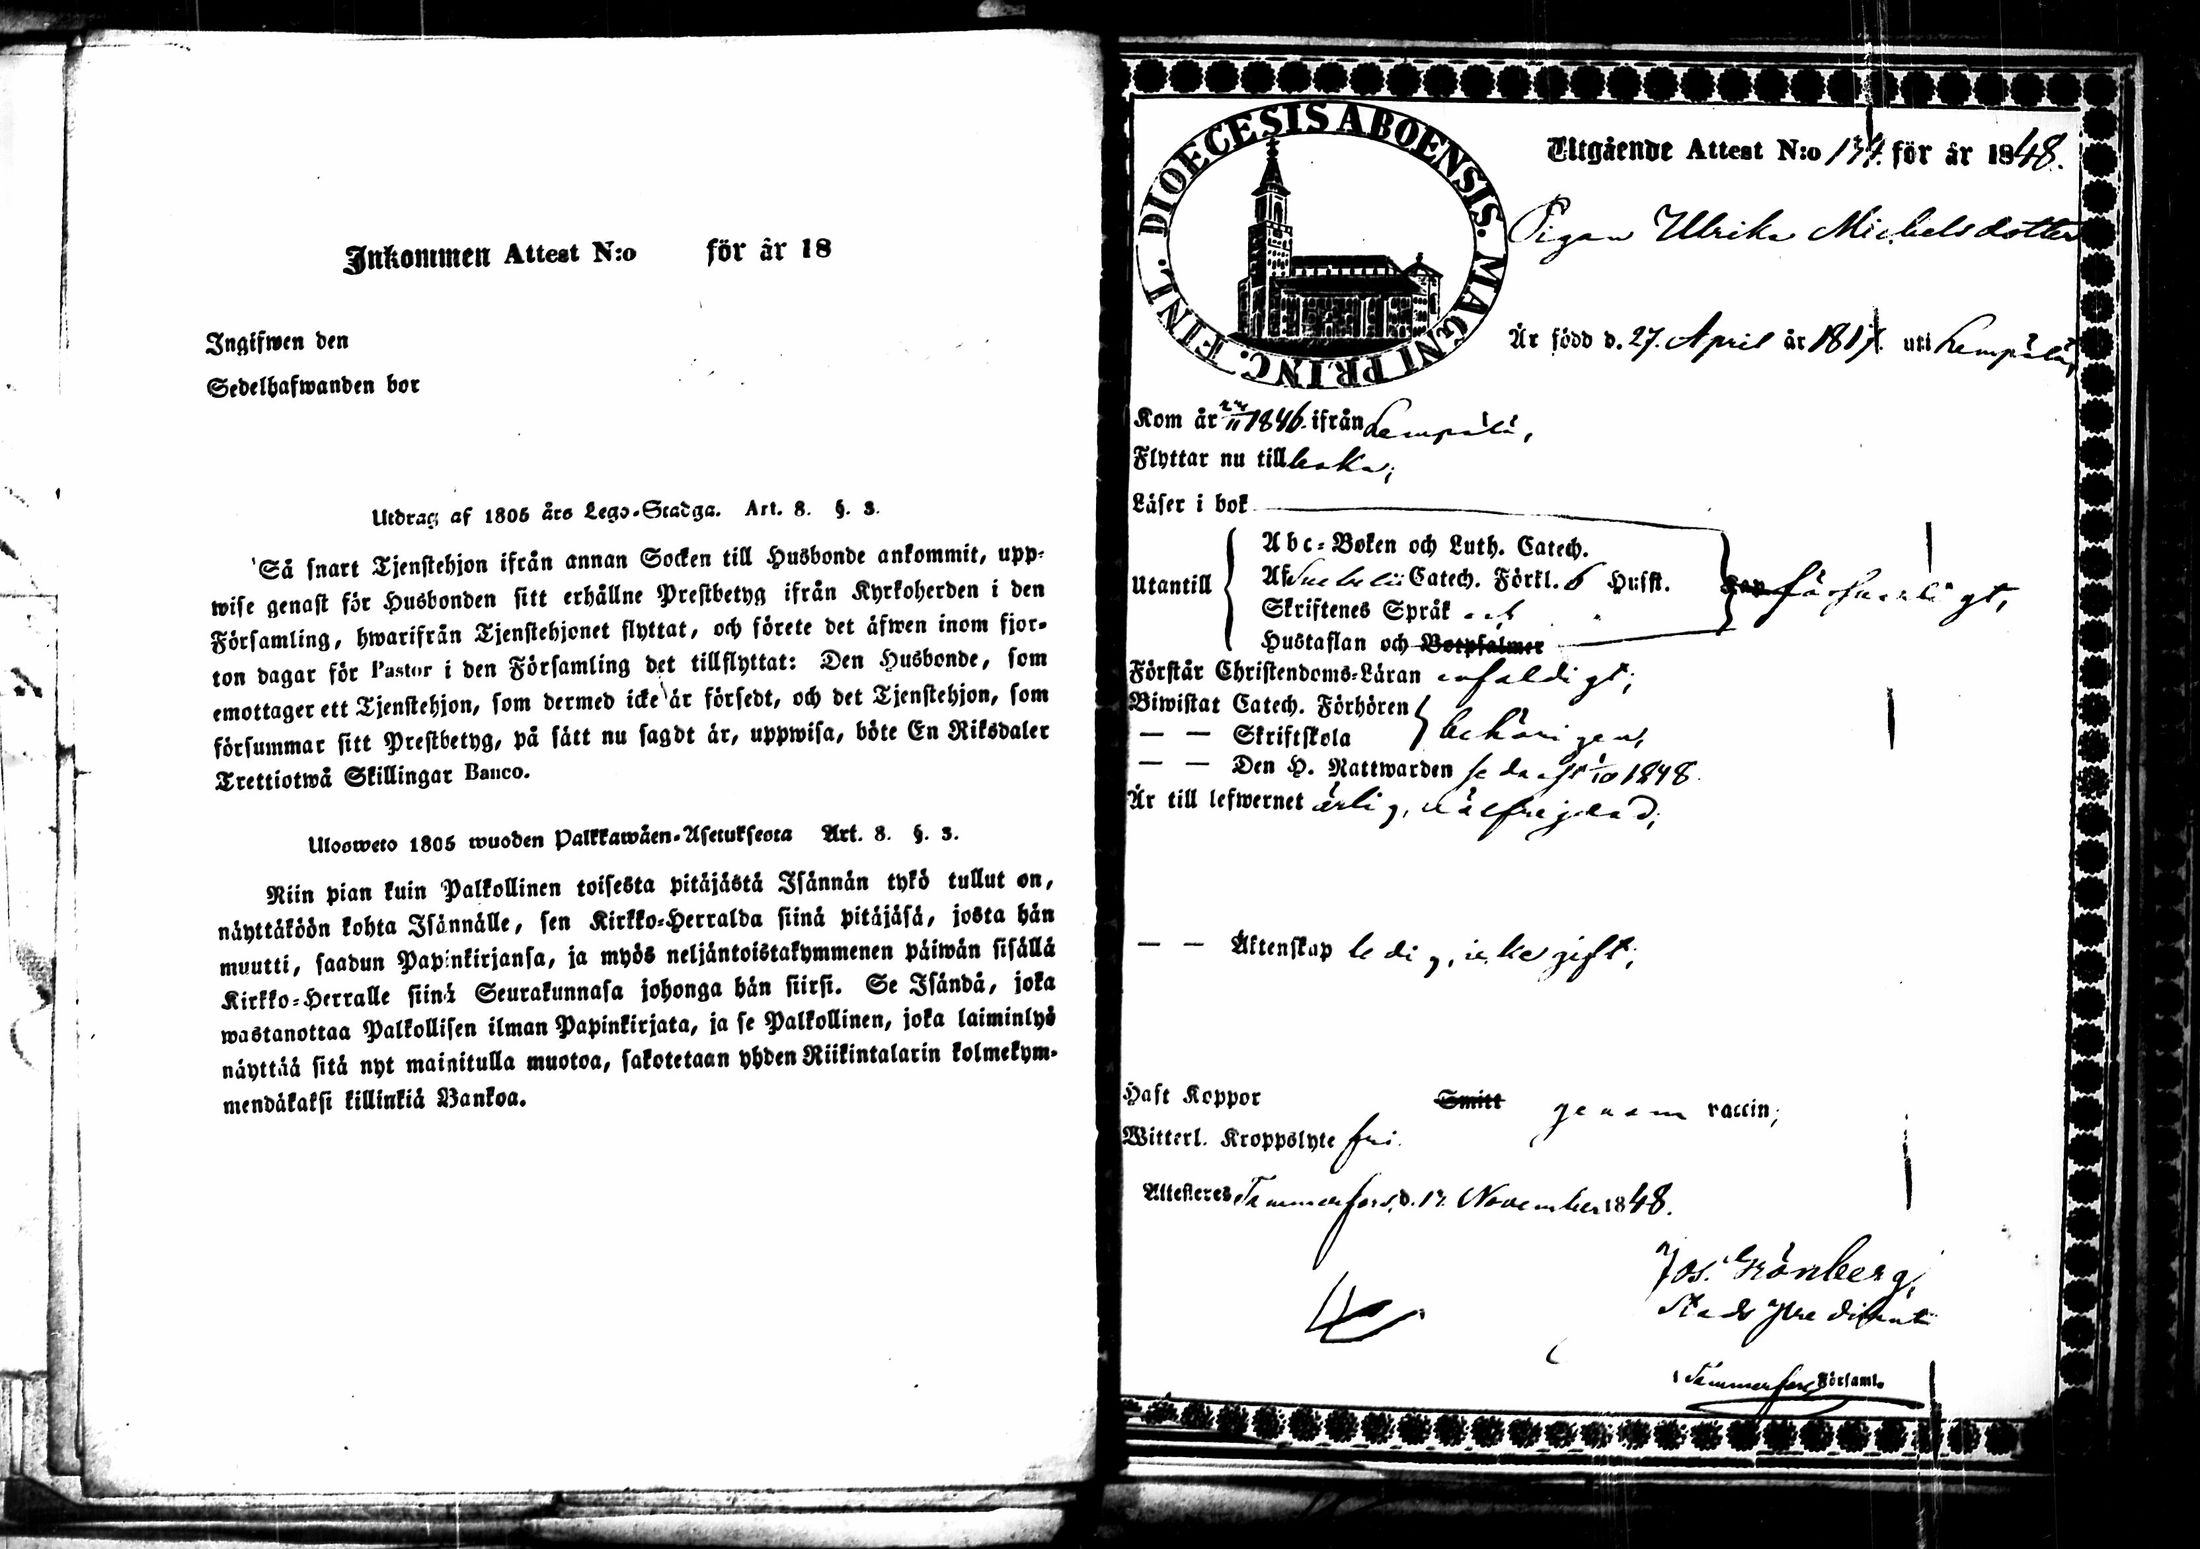 Inkommen Attest N:o för år 18
Ingifwen den
Sedelhafwanden bor
Utdrag af 1805 års Lego-Stadga. Art. 8. §. 3.
Så snart Tjenstehjon ifrån annan Socken till Husbonde ankommit, upp-
wise genast för Husbonden sitt erhållne Prestbetyg ifrån Kyrkoherden i den
Församling, hwarifrån Tjenstehjonet flyttat, och förete det äfwen inom fjor-
ton dagar för Pastor i den Församling det tillflyttat: Den Husbonde, som
emottager ett Tjenstehjon, som dermed icke är försedt, och det Tjenstehjon, som
försummar sitt Prestbetyg, på sätt nu sagdt är, uppwisa, böte En Riksdaler
Trettiotwå Skillingar Banco.
Ulosweto 1805 wuoden Palkkawäen-Asetuksesta Art. 8. §. 3.
Niin pian kuin Palkollinen toisesta pitäjästä Isännän tykö tullut on,
näyttäköön kohta Isännälle, sen Kirkko-Herralda siinä pitäjäsä, josta hän
muutti, saadun Papinkirjansa, ja myös neljäntoistakymmenen päiwän sisällä
Kirkko-Herralle siinä Seurakunnasa johonga hän siirsi. Se Isändä, joka
wastanottaa Palkollisen ilman Papinkirjata, ja se Palkollinen, joka laiminlyö
näyttää sitä nyt mainitulla muotoa, sakotetaan yhden Riikintalarin kolmekym-
mendäkaksi killinkiä Bankoa.
DIOECESIS ABOENSIS. MAGNI PRINC. FINL.
Utgående Attest N:o 134. för år 1848.
Pigan Ulrika Michelsdotter
Är född d. 27. April år 181 uti Lempälä,
Kom år 24/11 1846. ifrån Lempälä,
Flyttar nu till baka;
Läser i bok
Utantill
Abc-Boken och Luth. Catech.
Af Svebelii Catech. Förkl. 6 Hufst.
Skriftenes Språk och
Hustaflan och Botpsalmer
försvarligt,
Förstår Christendoms-Läran enfaldigt;
Biwistat Catech. Förhören
— — Skriftskola
behörigen,
— — Den H. Nattwarden sedast 1/10 1848.
Är till lefwernet ärlig, wälfrejdad;
— — Äktenskap ledig, icke gift;
Haft Koppor Smitt genom vaccin;
Witterl. Kroppslyte fri.
Attesteres Tammerfors, d. 17. November 1848.
Jos. Grönberg,
Stads Predikant
i Tammerfors Församl.